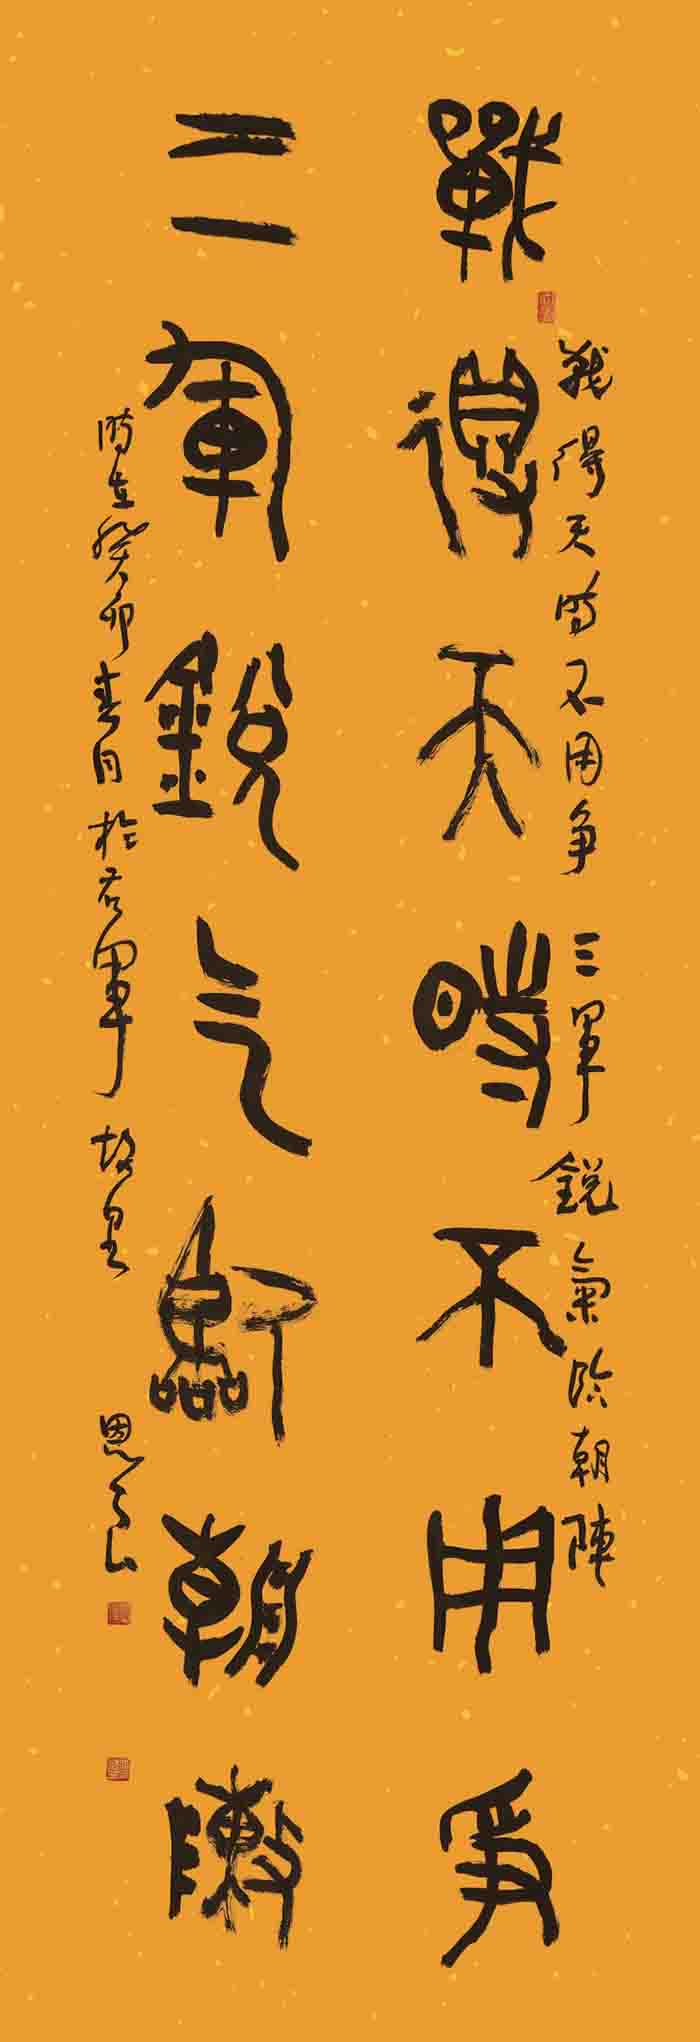 戰得天時不用爭
戰得天時不用争 三軍銳氣臨朝陣
三軍銳气臨朝陣
時在癸卯春月於右軍故里 恩